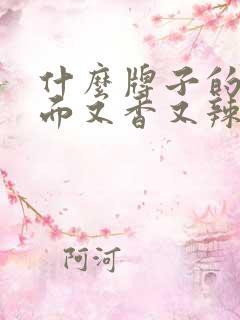 什麽牌子的
而又香又辣
阿河